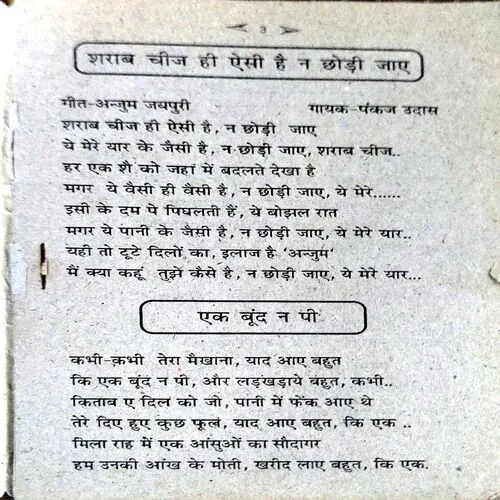 3
शराब चीज ही ऐसी है न छोड़ी जाए
गीत-अन्जुम जयपुरी गायक-पंकज उदास
शराब चीज ही ऐसी है, न छोड़ी जाए
ये मेरे यार के जैसी है, न छोड़ी जाए, शराब चीज..
हर एक शै को जहां में बदलते देखा है
मगर ये वैसी ही वैसी है, न छोड़ी जाए, ये मेरे......
इसी के दम पे पिघलती हैं, ये बोझल रात
मगर ये पानी के जैसी है, न छोड़ी जाए, ये मेरे यार..
यही तो टूटे दिलों का, इलाज है 'अन्जुम'
मैं क्या कहूं तुझे कैसे है, न छोड़ी जाए, ये मेरे यार...
एक बूंद न पी
कभी-क़भी तेरा मैखाना, याद आए बहुत
कि एक बूंद न पी, और लड़खड़ाये बहुत, कभी..
किताब ए दिल को जो, पानी में फेंक आए थे
तेरे दिए हुए कुछ फूल, याद आए बहुत, कि एक ..
मिला राह में एक आंसुओं का सौदागर
हम उनकी आंख के मोती, खरीद लाए बहुत, कि एक.